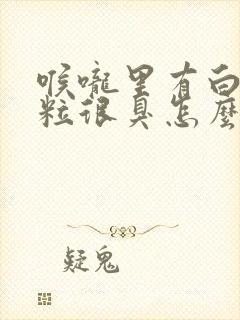 喉嚨里有白
粒很臭怎麼
疑鬼